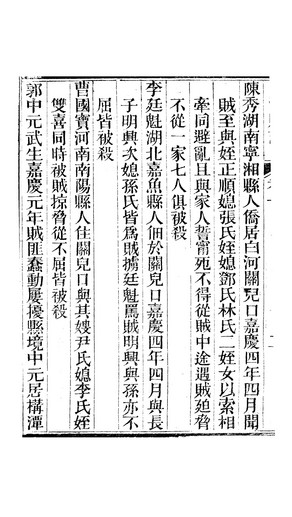 陳秀湖南寧湘縣人僑居白河關兒口嘉慶四年四月聞
賊至與姪正順媳張氏姪媳鄧氏林氏二姪女以索相
牽同避亂且與家人誓甯死不得從賊中途遇賊廹脅
不從一家七人俱被殺
李廷魁湖北嘉魚縣人佃於關兒口嘉慶四年四月與長
子明興次媳孫氏皆為賊擄廷魁罵賊明興與孫亦不
屈皆被殺
曹國寳河南南陽縣人住關兒口與其嫂尹氏媳李氏姪
雙喜同時被賊掠脅從不屈皆被殺
郭中元武生嘉慶元年賊匪蠢動屢擾縣境中元居構潭